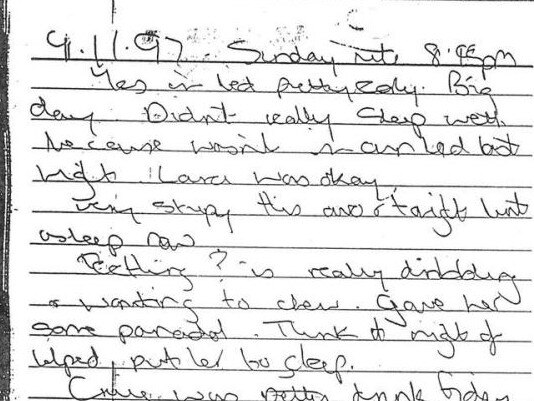 9.11.97 Sunday nite 8:45pm
Yes in bed pretty early. Big
day. Didn't really sleep well
because wasn't in own bed last
night. Laura was okay,
very this arvo & tonight but
asleep now
Teething? - is really dribbling
& wanting to chew. Gave her
some panadol. Think it might of
helped put her to sleep.
was pretty drunk Friday